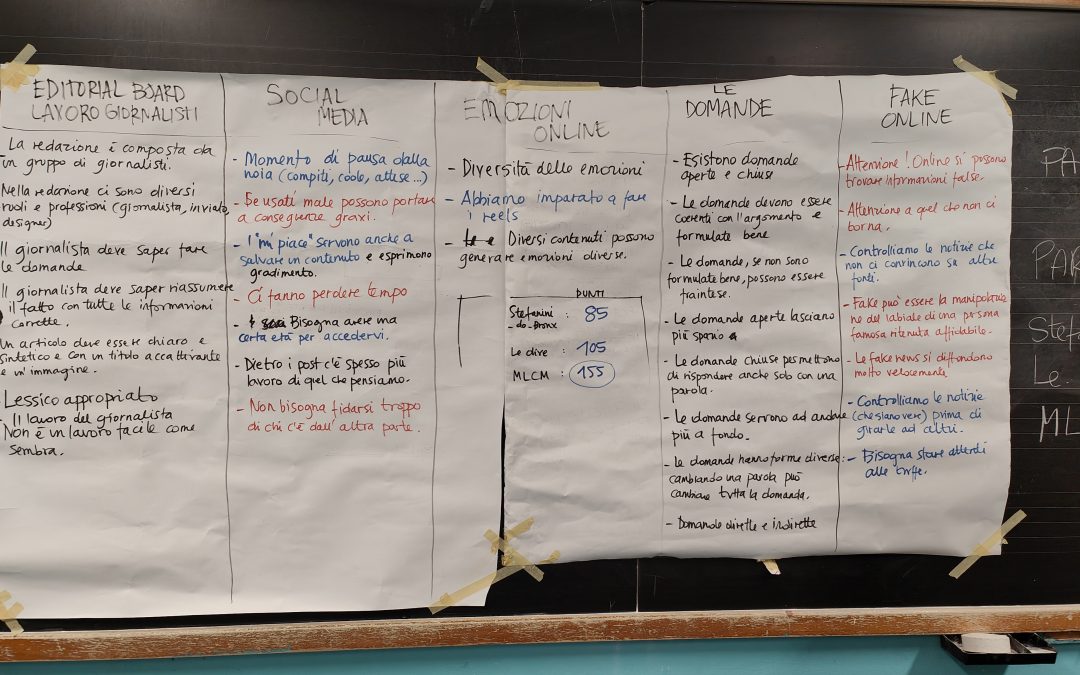 EDITORIAL BOARD
LAVORO GIORNALISTI
La redazione è composta da
un gruppo di giornalisti.
Nella redazione ci sono diversi
ruoli e professioni (giornalista, inviato,
designer)
Il giornalista deve saper fare
le domande
Il giornalista deve saper riassumere
il fatto con tutte le informazioni
corrette.
Un articolo deve essere chiaro e
sintetico e con un titolo accattivante
e un'immagine.
Lessico appropriato
Il lavoro del giornalista
Non è un lavoro facile come
sembra.
SOCIAL
MEDIA
- Momento di pausa dalla
noia (compiti, code, attese...)
- Se usati male possono portare
a conseguenze gravi.
- I "mi piace" servono anche a
salvare un contenuto e esprimono
gradimento.
- Ci fanno perdere tempo
- Bisogna avere una
certa età per accedervi.
- Dietro i post c'è spesso più
lavoro di quel che pensiamo.
- Non bisogna fidarsi troppo
di chi c'è dall'altra parte.
EMOZIONI
ONLINE
- Diversità delle emozioni
- Abbiamo imparato a fare
i reels
- Diversi contenuti possono
generare emozioni diverse.
PUNTI
Stefanini : 85
-do-Bronx
Le dive : 105
MLCM : 155
LE
DOMANDE
- Esistono domande
aperte e chiuse
- Le domande devono essere
coerenti con l'argomento e
formulate bene
- Le domande, se non sono
formulate bene, possono essere
fraintese.
- Le domande aperte lasciano
più spazio
- Le domande chiuse permettono
di rispondere anche solo con una
parola.
- Le domande servono ad andare
più a fondo.
- Le domande hanno forme diverse:
cambiando una parola può
cambiare tutta la domanda.
- Domande dirette e indirette
FAKE
ONLINE
- Attenzione! Online si possono
trovare informazioni false.
- Attenzione a quel che non ci
torna.
- Controlliamo le notizie che
non ci convincono su altre
fonti.
- Fake può essere la manipolazio
ne del labiale di una persona
famosa ritenuta affidabile.
- Le fake news si diffondono
molto velocemente
- Controlliamo le notizie
(che siano vere) prima di
girarle ad altri.
- Bisogna stare attenti
alle truffe.
PA
PAR
Stef
Le.
ML